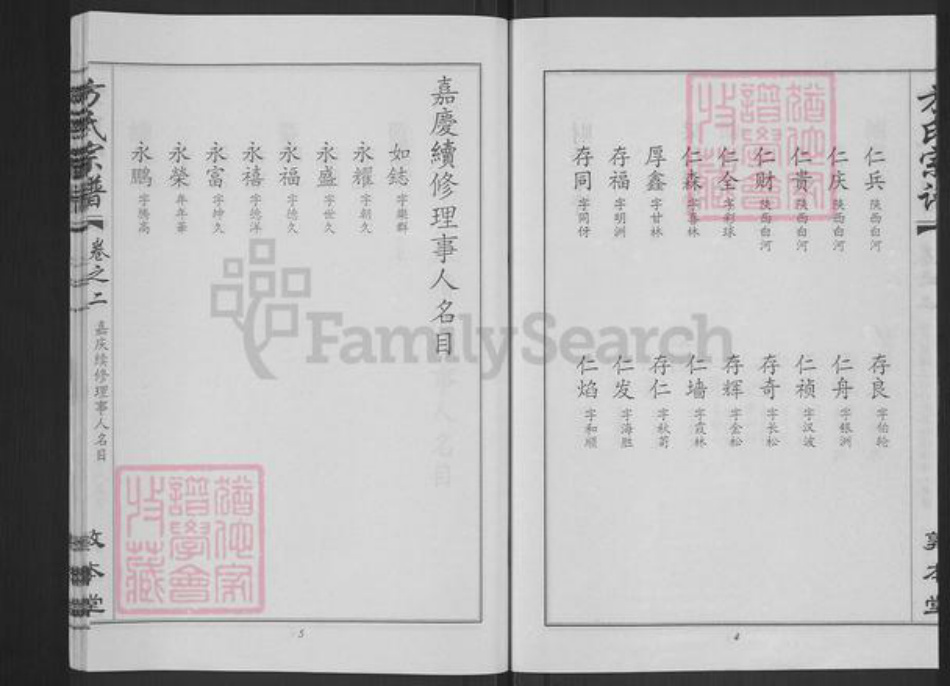 仁兵 陕西白河
仁庆 陕西白河
仁贵 陕西白河
仁财 陕西白河
仁全 字彩球
仁森 字喜林
厚鑫 字甘林
存福 字明洲
存同 字同伢
存良 字伯轮
仁舟 字银洲
仁祯 字汉波
存奇 字长松
存辉 字金松
仁墙 字霞林
存仁 字秋菊
仁发 字海胜
仁焰 字和顺
4
嘉慶續修理事人名目
如鋕 字樂群
永耀 字朝久
永盛 字世久
永福 字德久
永禧 字德洋
永富 字坤久
永榮 字年華
永鵬 字腾高
5
方氏宗譜
卷之二
嘉庆续修理事人名目
敦本堂
FamilySearch